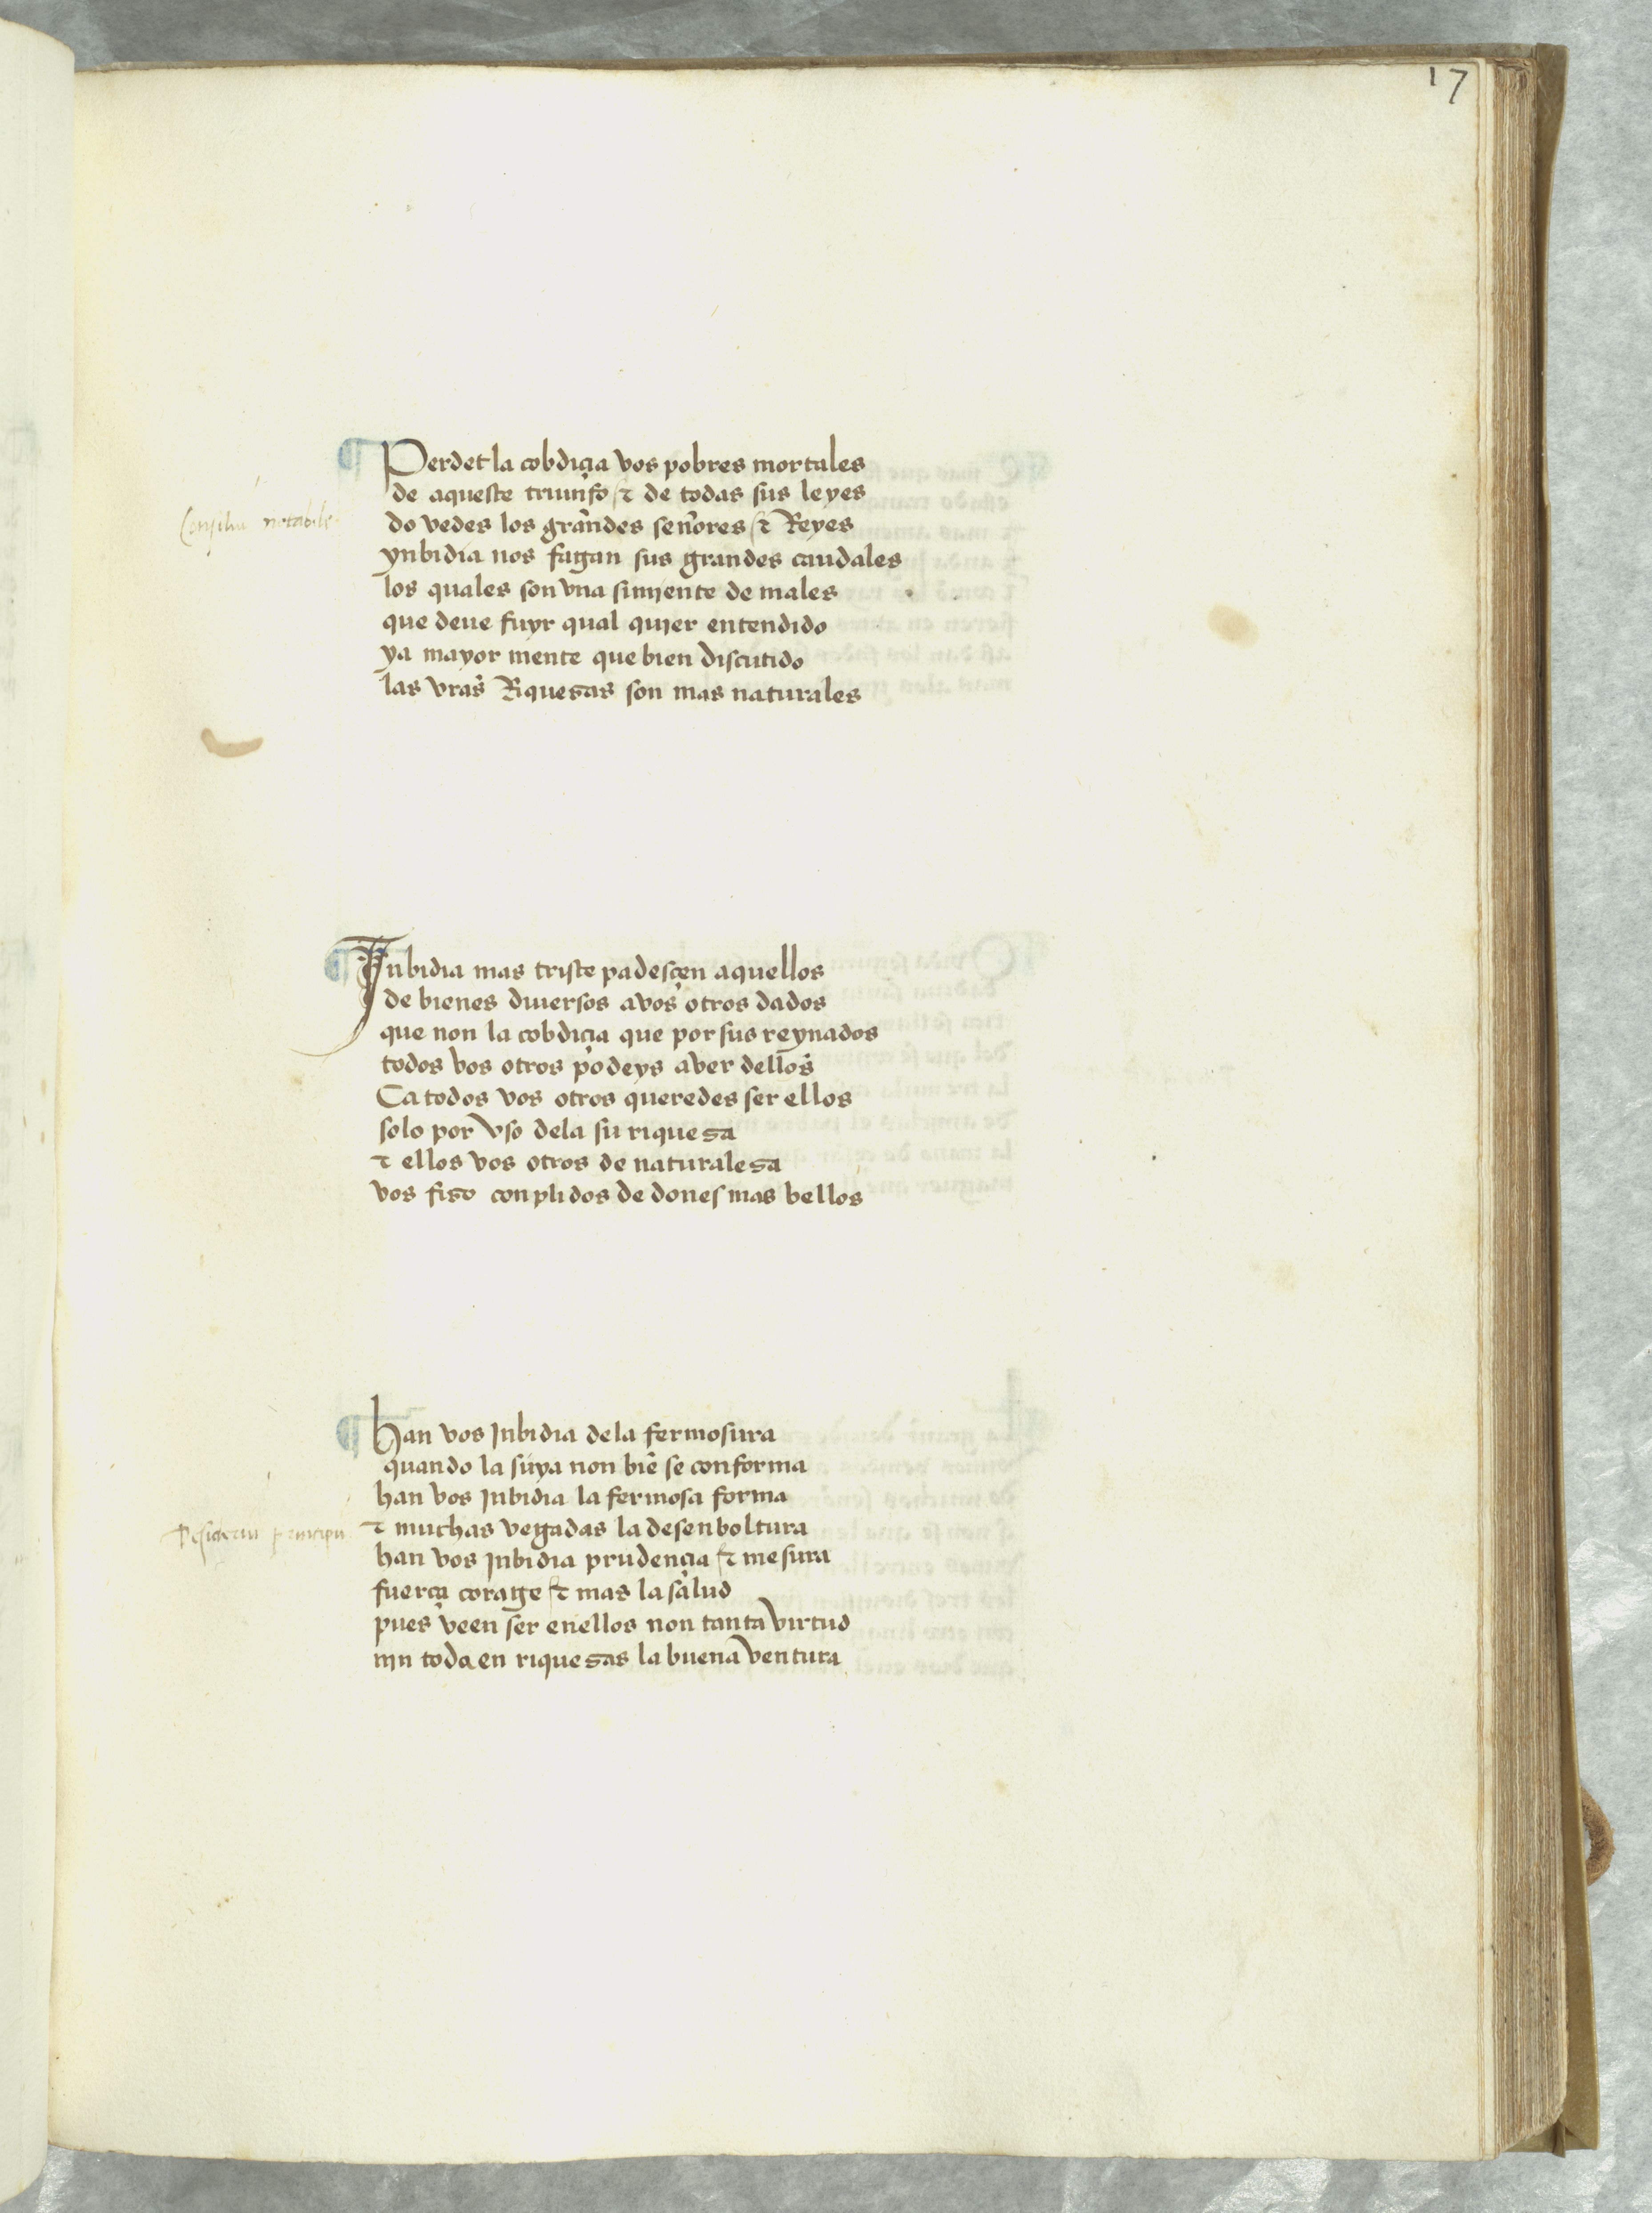 17
¶ Perdet la cobdiçia vos pobres mortales
de aqueste triunfo ⁊ de todas sus leyes
do vedes los grandes señores ⁊ Reyes
ynbidia nos fagan sus grandes caudales
los quales son vna simjente de males
que deue fuyr qual qujer entendido
ya mayor mente que bien discutido
las vras Riquesas son mas naturales
Consiliũ notabile
¶ Ynbidia mas triste padesçen aquellos
de bienes diuersos a vos otros dados
que non la cobdiçia que por sus reynados
todos vos otros podeys aver dellos
Ca todos vos otros queredes ser ellos
solo por vso dela su riquesa
⁊ ellos vos otros de naturalesa
vos fiso conplidos de dones mas bellos
¶ han vos Jnbidia dela fermosura
quando la suya non biẽ se conforma
han vos Jnbidia la fermosa forma
⁊ muchas vegadas la desenboltura
han vos Jnbidia prudençia ⁊ mesura
fuerça corage ⁊ mas la salud
pues veen ser enellos non tanta virtud
njn toda en riquesas la buena ventura